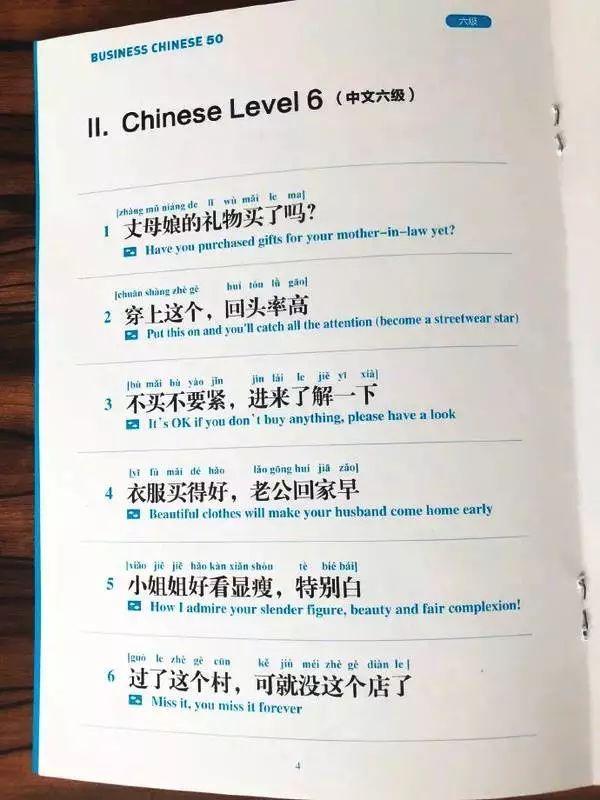 六级
BUSINESS CHINESE 50
II. Chinese Level 6（中文六级）
[zhàng mǔ niáng de lǐ wù mǎi le ma]
1 丈母娘的礼物买了吗？
Have you purchased gifts for your mother-in-law yet?
[chuān shàng zhè gè huí tóu lǜ gāo]
2 穿上这个，回头率高
Put this on and you'll catch all the attention (become a streetwear star)
[bù mǎi bù yào jǐn jìn lái le jiě yī xià]
3 不买不要紧，进来了解一下
It's OK if you don't buy anything, please have a look
[yī fú mǎi dé hǎo lǎo gōng huí jiā zǎo]
4 衣服买得好，老公回家早
Beautiful clothes will make your husband come home early
[xiǎo jiě jiě hǎo kàn xiǎn shòu tè bié bái]
5 小姐姐好看显瘦，特别白
How I admire your slender figure, beauty and fair complexion!
[guò le zhè gè cūn kě jiù méi zhè gè diàn le]
6 过了这个村，可就没这个店了
Miss it, you miss it forever
4